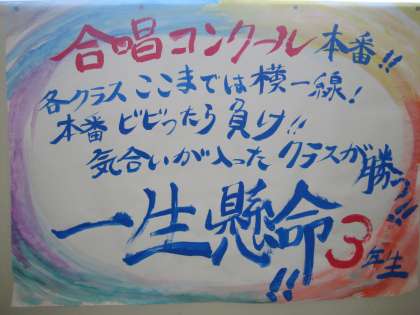 合唱コンクール本番!!
各クラスここまでは横一線!
本番ビビったら負け!!
気合いが入ったクラスが勝つ!!
一生懸命!! 3年生